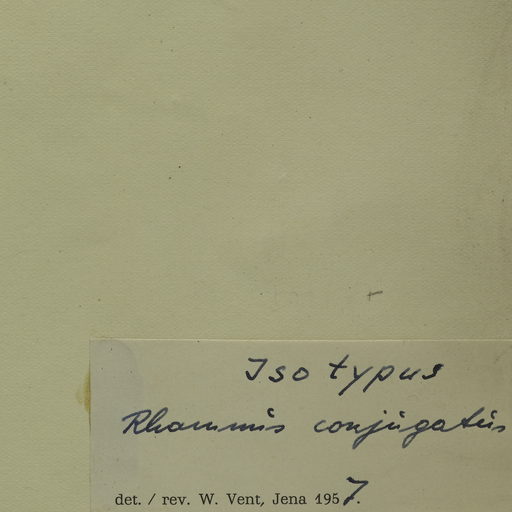 Isotypus
Rhamnus conjugatus
det. / rev. W. Vent, Jena 1957.